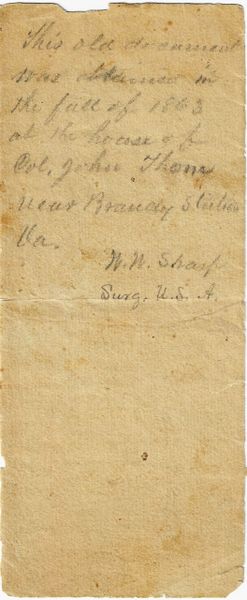 This old document
was obtained in
the fall of 1863
at the house of
Col. John Thom
near Brandy Station
Va.
W. W. Sharp
Surg. U. S. A.